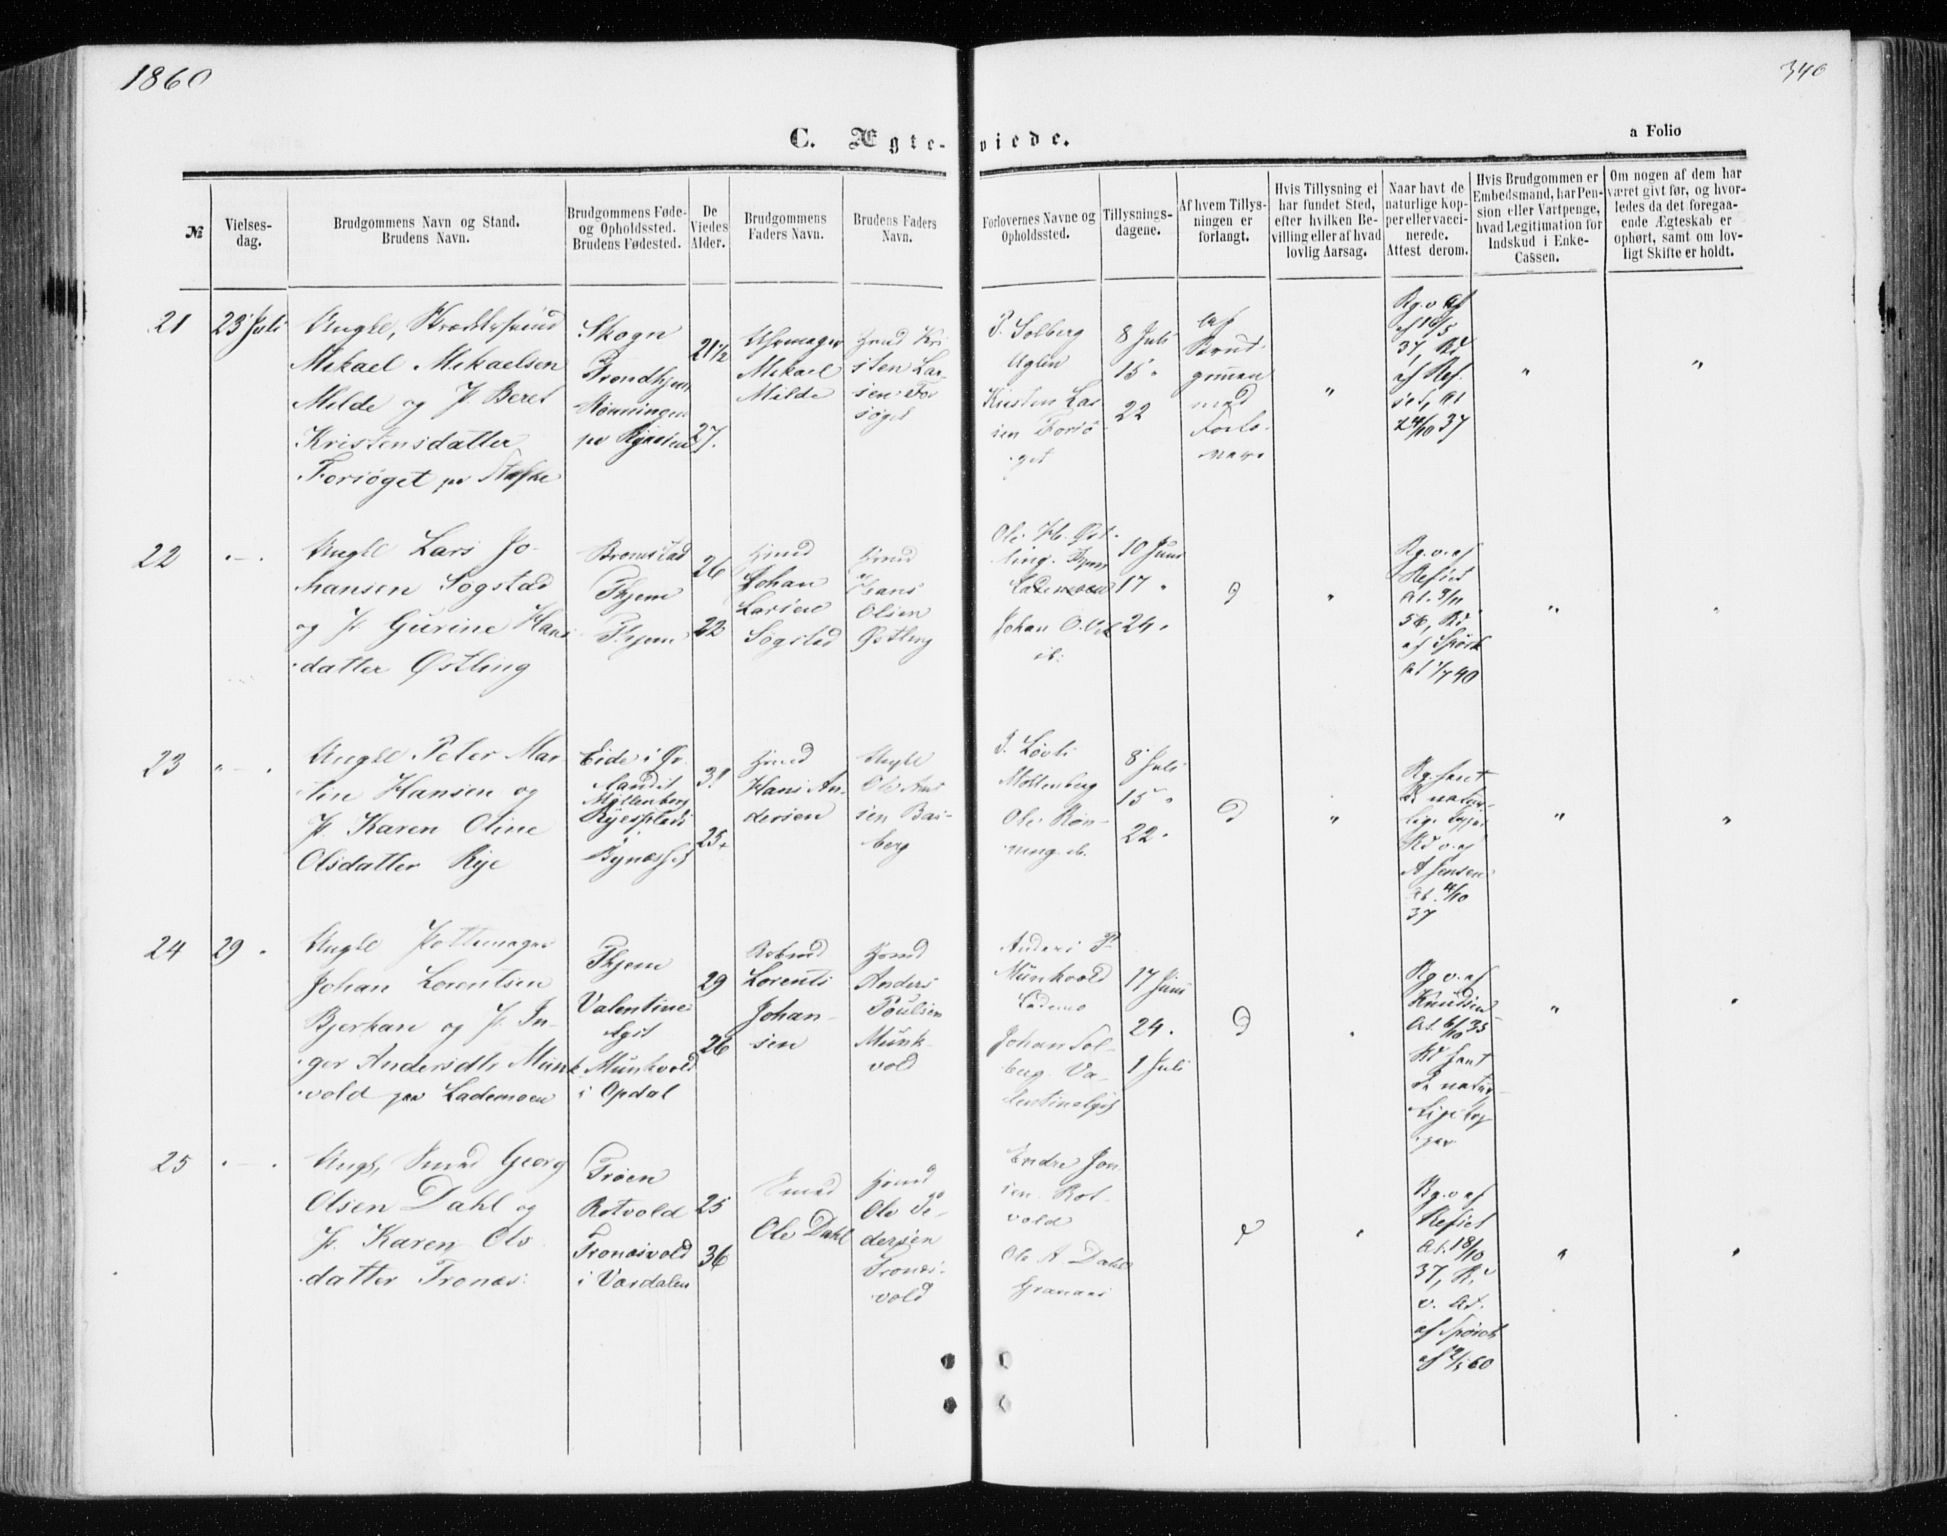 1860
340
C. Ægte-
viede.
a Folio
№
Vielses-
dag.
Brudgommens Navn og Stand.
Brudens Navn.
Brudgommens Føde-
og Opholdssted.
Brudens Fødested.
De
Viedes
Alder.
Brudgommens
Faders Navn.
Brudens Faders
Navn.
Forlovernes Navne og
Opholdssted.
Tillysnings-
dagene.
Af hvem Tillys-
ningen er
forlangt.
Hvis Tillysning ei
har fundet Sted,
efter hvilken Be-
villing eller af hvad
lovlig Aarsag.
Naar havt de
naturlige kop-
per eller vacci-
nerede.
Attest derom.
Hvis Brudgommen er
Embedsmand, har Pen-
sion eller Vartpenge,
hvad Legitimation for
Indskud i Enke-
Cassen.
Om nogen af dem har
været givt før, og hvor-
ledes da det foregaa-
ende Ægteskab er
ophørt, samt om lov-
ligt Skifte er holdt.
21
23 Juli
Ungkl,
Mikael Mikaelsen
Milde og P. Beret
Kristensdatter
Forsøget
Skogn
Trondhjem
Rønningen
21 1/2
27.
Uhrmager
Mikael
Milde
Hmd Kri
sten Lar
sen For
søget
P. Solberg
Uglen
Kristen Lar
sen Forsø
get
8 Juli
15 "
22
Af
Brud-
gommen
med
Forlo-
ver.
"
37, Bd
af Ref.
24/10 37
"
"
22
. — .
Ungkl Lars Jo-
hansen Sogstad
og P. Gurine Hans
datter Østling
Bromstad
Thjem
Thjem
26
22
Hmd
Johan
Larsen
Sogstad
Hmd
Hans
Olsen
Østling
Ole H. Øst-
ling.
Lademoen
Johan O.
ib:
10 Juni
17 "
24.
d
"
Bg. v. af
Refset
At. 3/11
56, Bd
af Spørck
At 1/7 40
"
"
23
" — .
Ungkl Peter Mar-
tin Hansen og
P. Karen Oline
Olsdatter Rye
Eide i Ør
landet
Møllenberg
Ryesplads
Bynæsset
31
25.
Hmd
Hans An-
dersen
Ungkl
Ole
sen
berg
P. Løvli
Møllenberg
Ole Røn-
ning ib.
8 Juli
15 "
22.
d
"
Bg. havt
d. natur-
lige
Bd v. af
A Jensen
At. 4/10
37
"
"
24
29 .
Ungkl Pottemager
Johan Lorentsen
Bjerkan og P. In-
ger Andersdtr Munk
vold paa Lademoen
Thjem
Valentine
lyst
Munkvold
i Opdal
29
26
Lorents
Johan-
sen
Hmd
Anders
Poulsen
Munk-
vold
Anders P.
Munkvold
Lademo
Johan Sol-
berg. Va-
lentinelyst
17 Juni
24.
1 Juli
d
.
Bg v. af
Knudsen
At. 6/10 35
Bd havt
d. natur-
lige kop
per
"
"
25
. — .
Ungk, Smed Georg
Olsen Dahl og
P. Karen Ols
datter Tronæs
Trøen
Rotvold
Tronæsvold
i Værdalen
25
36
Smed
Ole Dahl
Hmd
Ole Pe-
dersen
Tronæs-
vold
Endre Jon
sen. Rot-
vold
Ole A Dahl
Granaas
d
"
Bg. v af
Refset
At. 18/10
37, Bd
v. At.
af Spørck
af 2/5 60
"
"